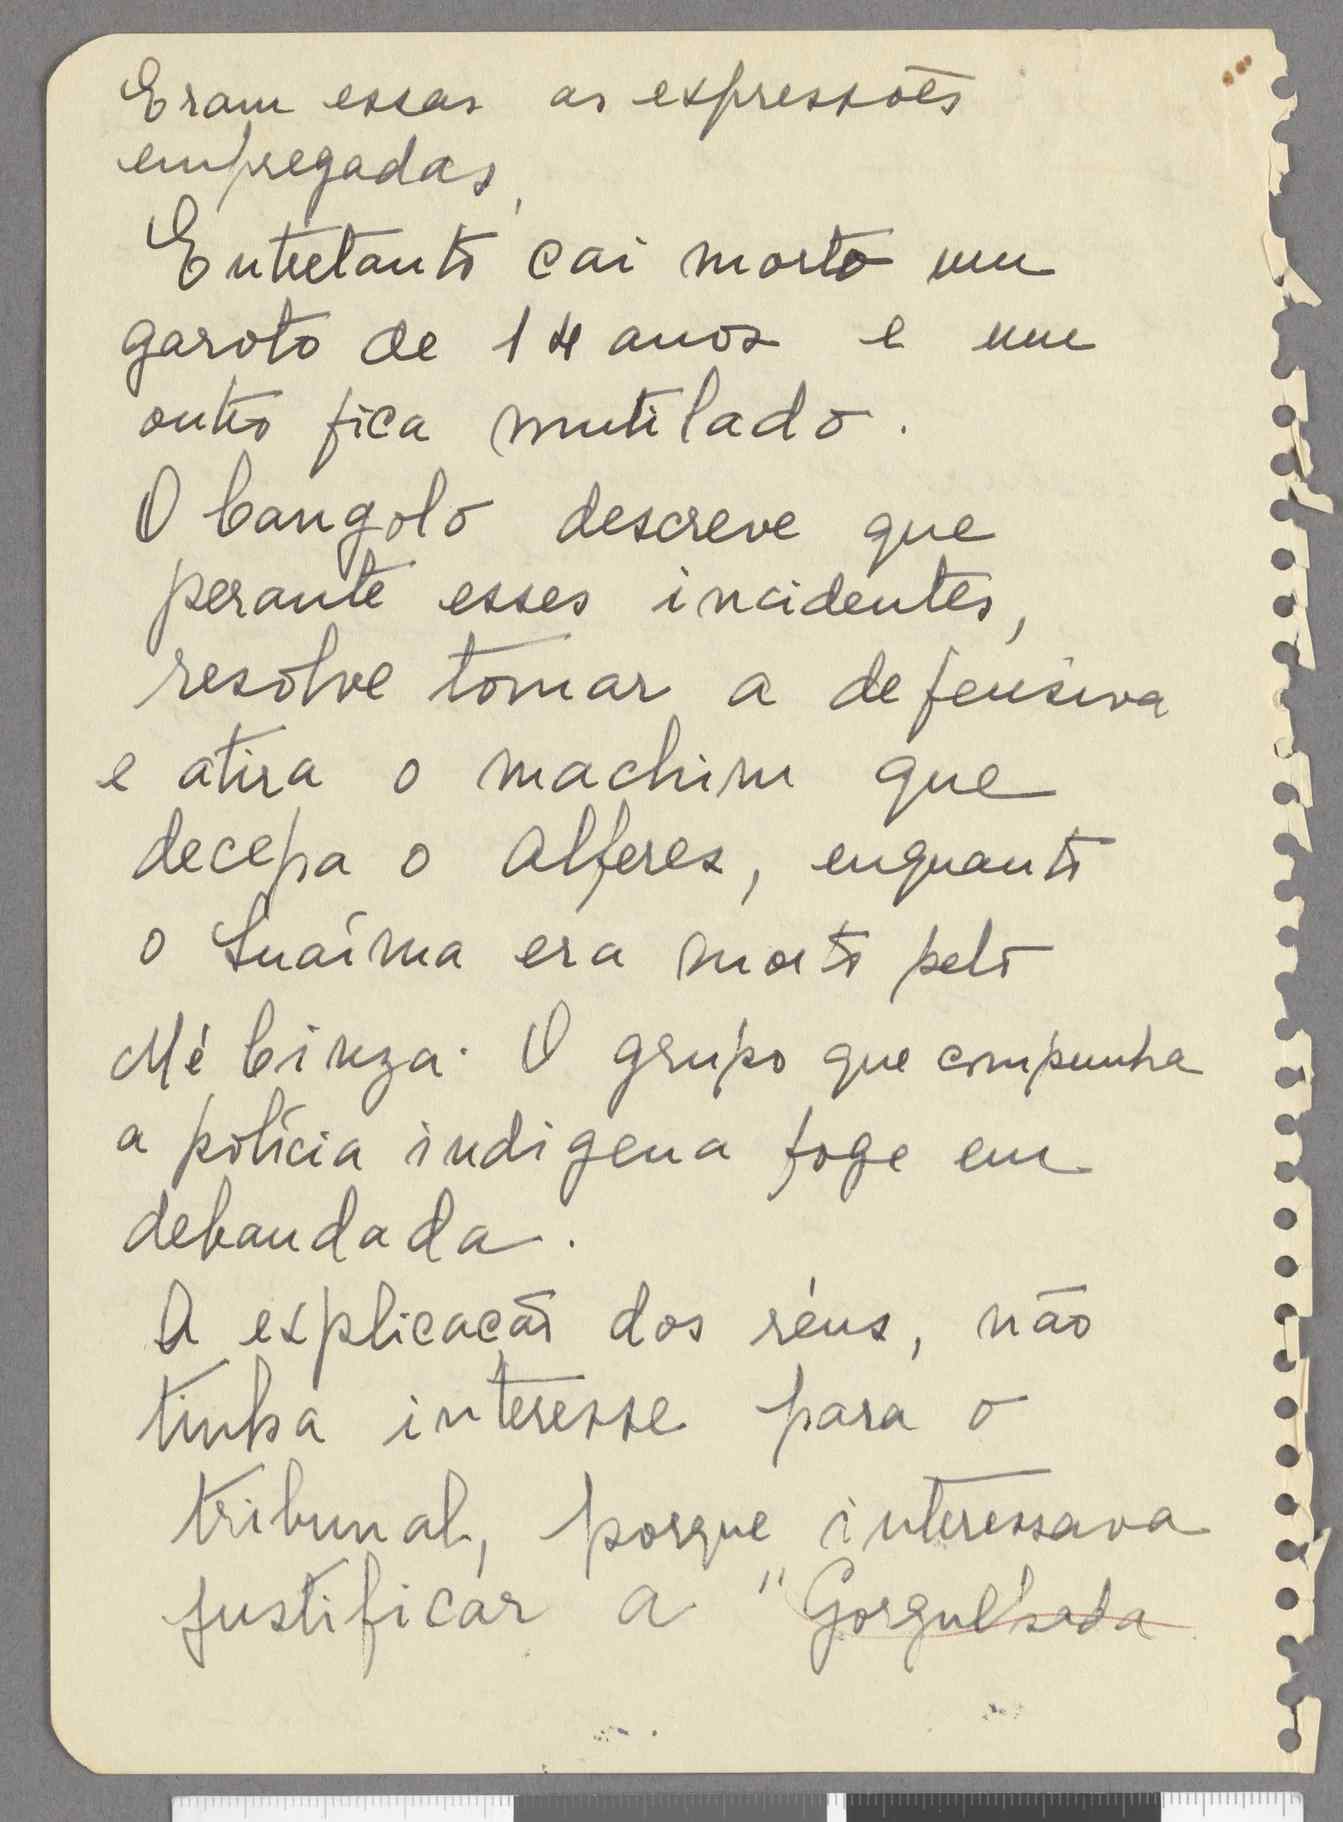 Eram essas as expressões
empregadas,
Entretanto cai morto um
garoto de 14 anos e um
outro fica mutilado.
O Cangolo descreve que
perante esses incidentes,
resolve tomar a defensiva
e atira o machim que
decepa o Alferes, enquanto
o Suaíma era morto pelo
Mé Cinza. O grupo que compunha
a polícia indigena foge em
debandada.
A explicacão dos réus, não
tinha interesse para o
tribunal, porque interessava
justificar a "Gorgul